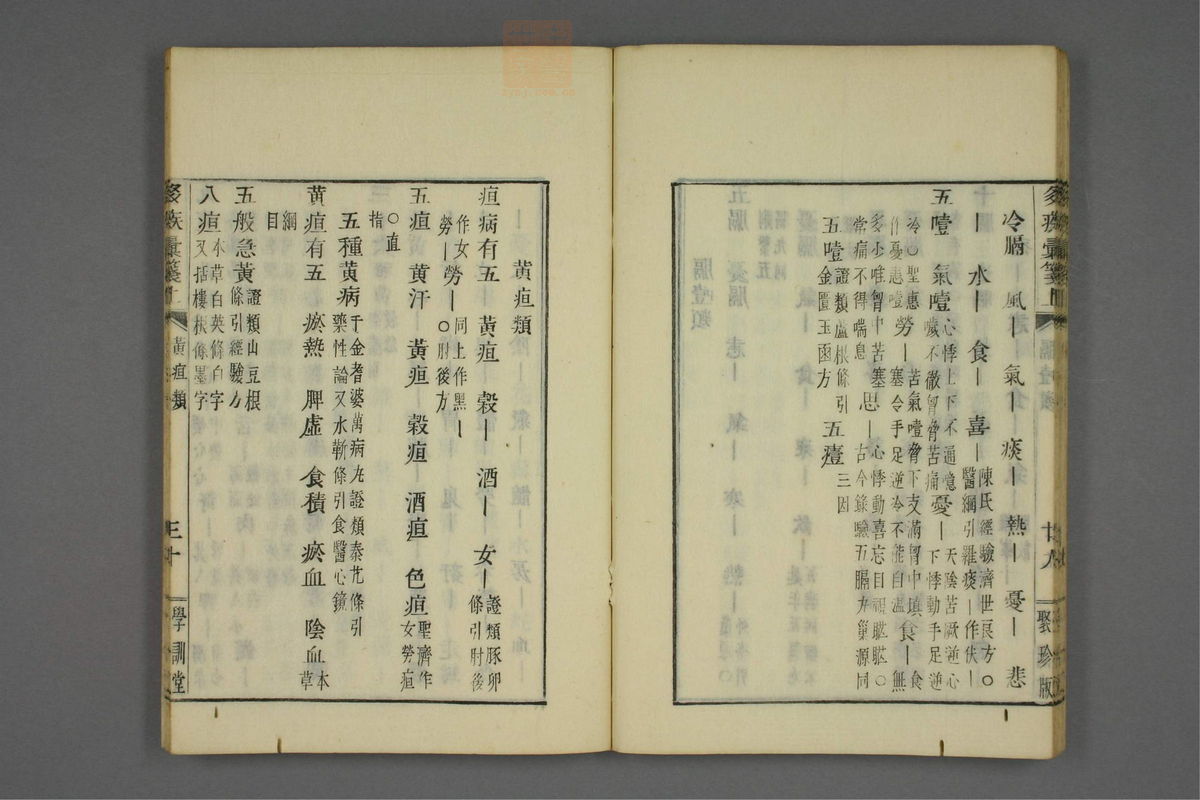 冷膈　風　氣　痰｜熱｜憂｜悲
｜水｜食｜喜｜陳氏經驗濟世良方○
醫綱引雞痰｜作伏｜
五噎　氣噎心悸上下不通噫
噦不徹胷脅苦痛憂｜天陰苦厥逆心
下悸動手足逆
冷○聖惠
作憂恚噎勞｜苦氣噎脅下支滿胷中填
塞令手足逆冷不能自溫食｜食無
多少唯胷中苦塞
常痛不得喘息思｜心悸動喜忘目視䀮䀮○
古今錄驗五膈丸巢源同
五噎證類蘆根條引
金匱玉函方　五㱊三因
膈噎類
廿九
聚珍版
黃疸類
疸病有五　黃疸　穀｜酒｜女｜證類豚卵
條引肘後
作女勞｜同上作黑｜
勞｜○肘後方
五疸　黃汗　黃疸　穀疸　酒疸　色疸聖濟作
女勞疸
○直
指
五種黃病千金耆婆萬病丸證類秦艽條引
藥性論又水蘄條引食醫心鏡
黃疸有五　瘀熱　脾虛　食積　瘀血　陰血本草
綱
目
五般急黃證類山豆根
條引經驗方
八疸本草白英條白字
又括樓根條墨字
黃疸類
三十
學訓堂